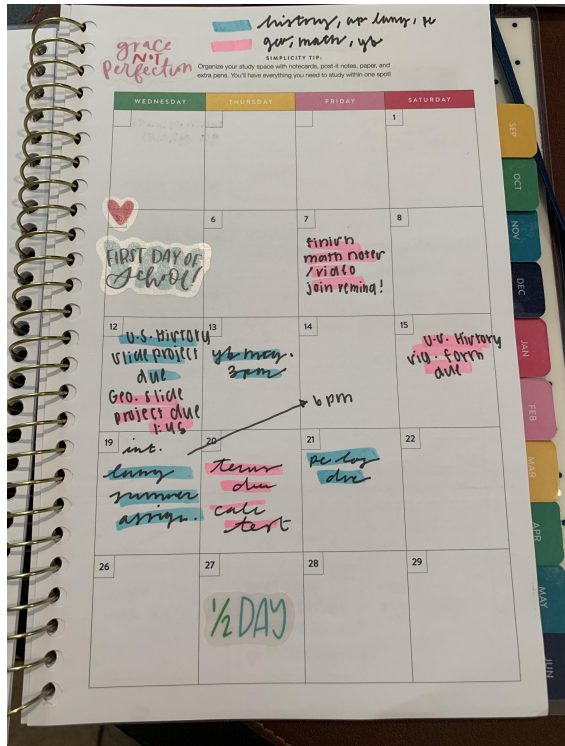 history, ap lang, pe
geo, math, yb
grace
NOT
Perfection
SIMPLICITY TIP:
Organize your study space with notecards, post-it notes, paper, and
extra pens. You'll have everything you need to study within one spot!
WEDNESDAY THURSDAY FRIDAY SATURDAY
1
FIRST DAY OF
School!
6
7
finish
math notes
/ video
join remind!
8
12
U.S. History
slide project
due
Geo. slide
project due
1:45
13
yb mag.
3pm
14
6 pm
15
U.S. History
sig. form
due
19
int.
lang
summer
assign.
20
terms
due
calc
test
21
pe log
due
22
26
27
1/2 DAY
28
29
SEP
OCT
NOV
DEC
JAN
FEB
MAR
APR
MAY
JUN